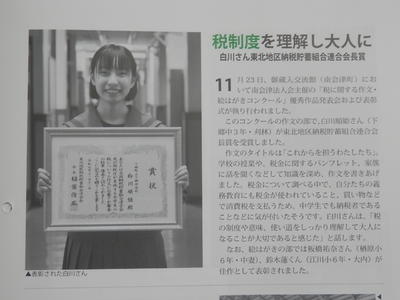 税制度を理解し大人に
白川さん東北地区納税貯蓄組合連合会長賞
11月23日、御蔵入交流館（南会津町）にお
いて南会津法人会主催の『税に関する作文・
絵はがきコンクール』優秀作品発表会および表彰
式が執り行われました。
このコンクールの作文の部で、白川順姫さん（下
郷中3年・刈林）が東北地区納税貯蓄組合連合会
長賞を受賞しました。
作文のタイトルは「これからを担うわたしたち」。
学校の授業や、税金に関するパンフレット、家族
に話を聞くなどして知識を深め、作文を書きあげ
ました。税金について調べる中で、自分たちの義
務教育にも税金が使われていること、買い物など
で消費税を支払うため、中学生でも納税者である
ことなどに気が付いたそうです。白川さんは、「税
の制度や意味、使い道をしっかり理解して大人に
なることが大切であると感じた」と話します。
なお、絵はがきの部では板橋祐奈さん（楢原小
6年・中妻）、鈴木蓮くん（江川小6年・大内）が
佳作として表彰されました。
賞状
▲表彰された白川さん